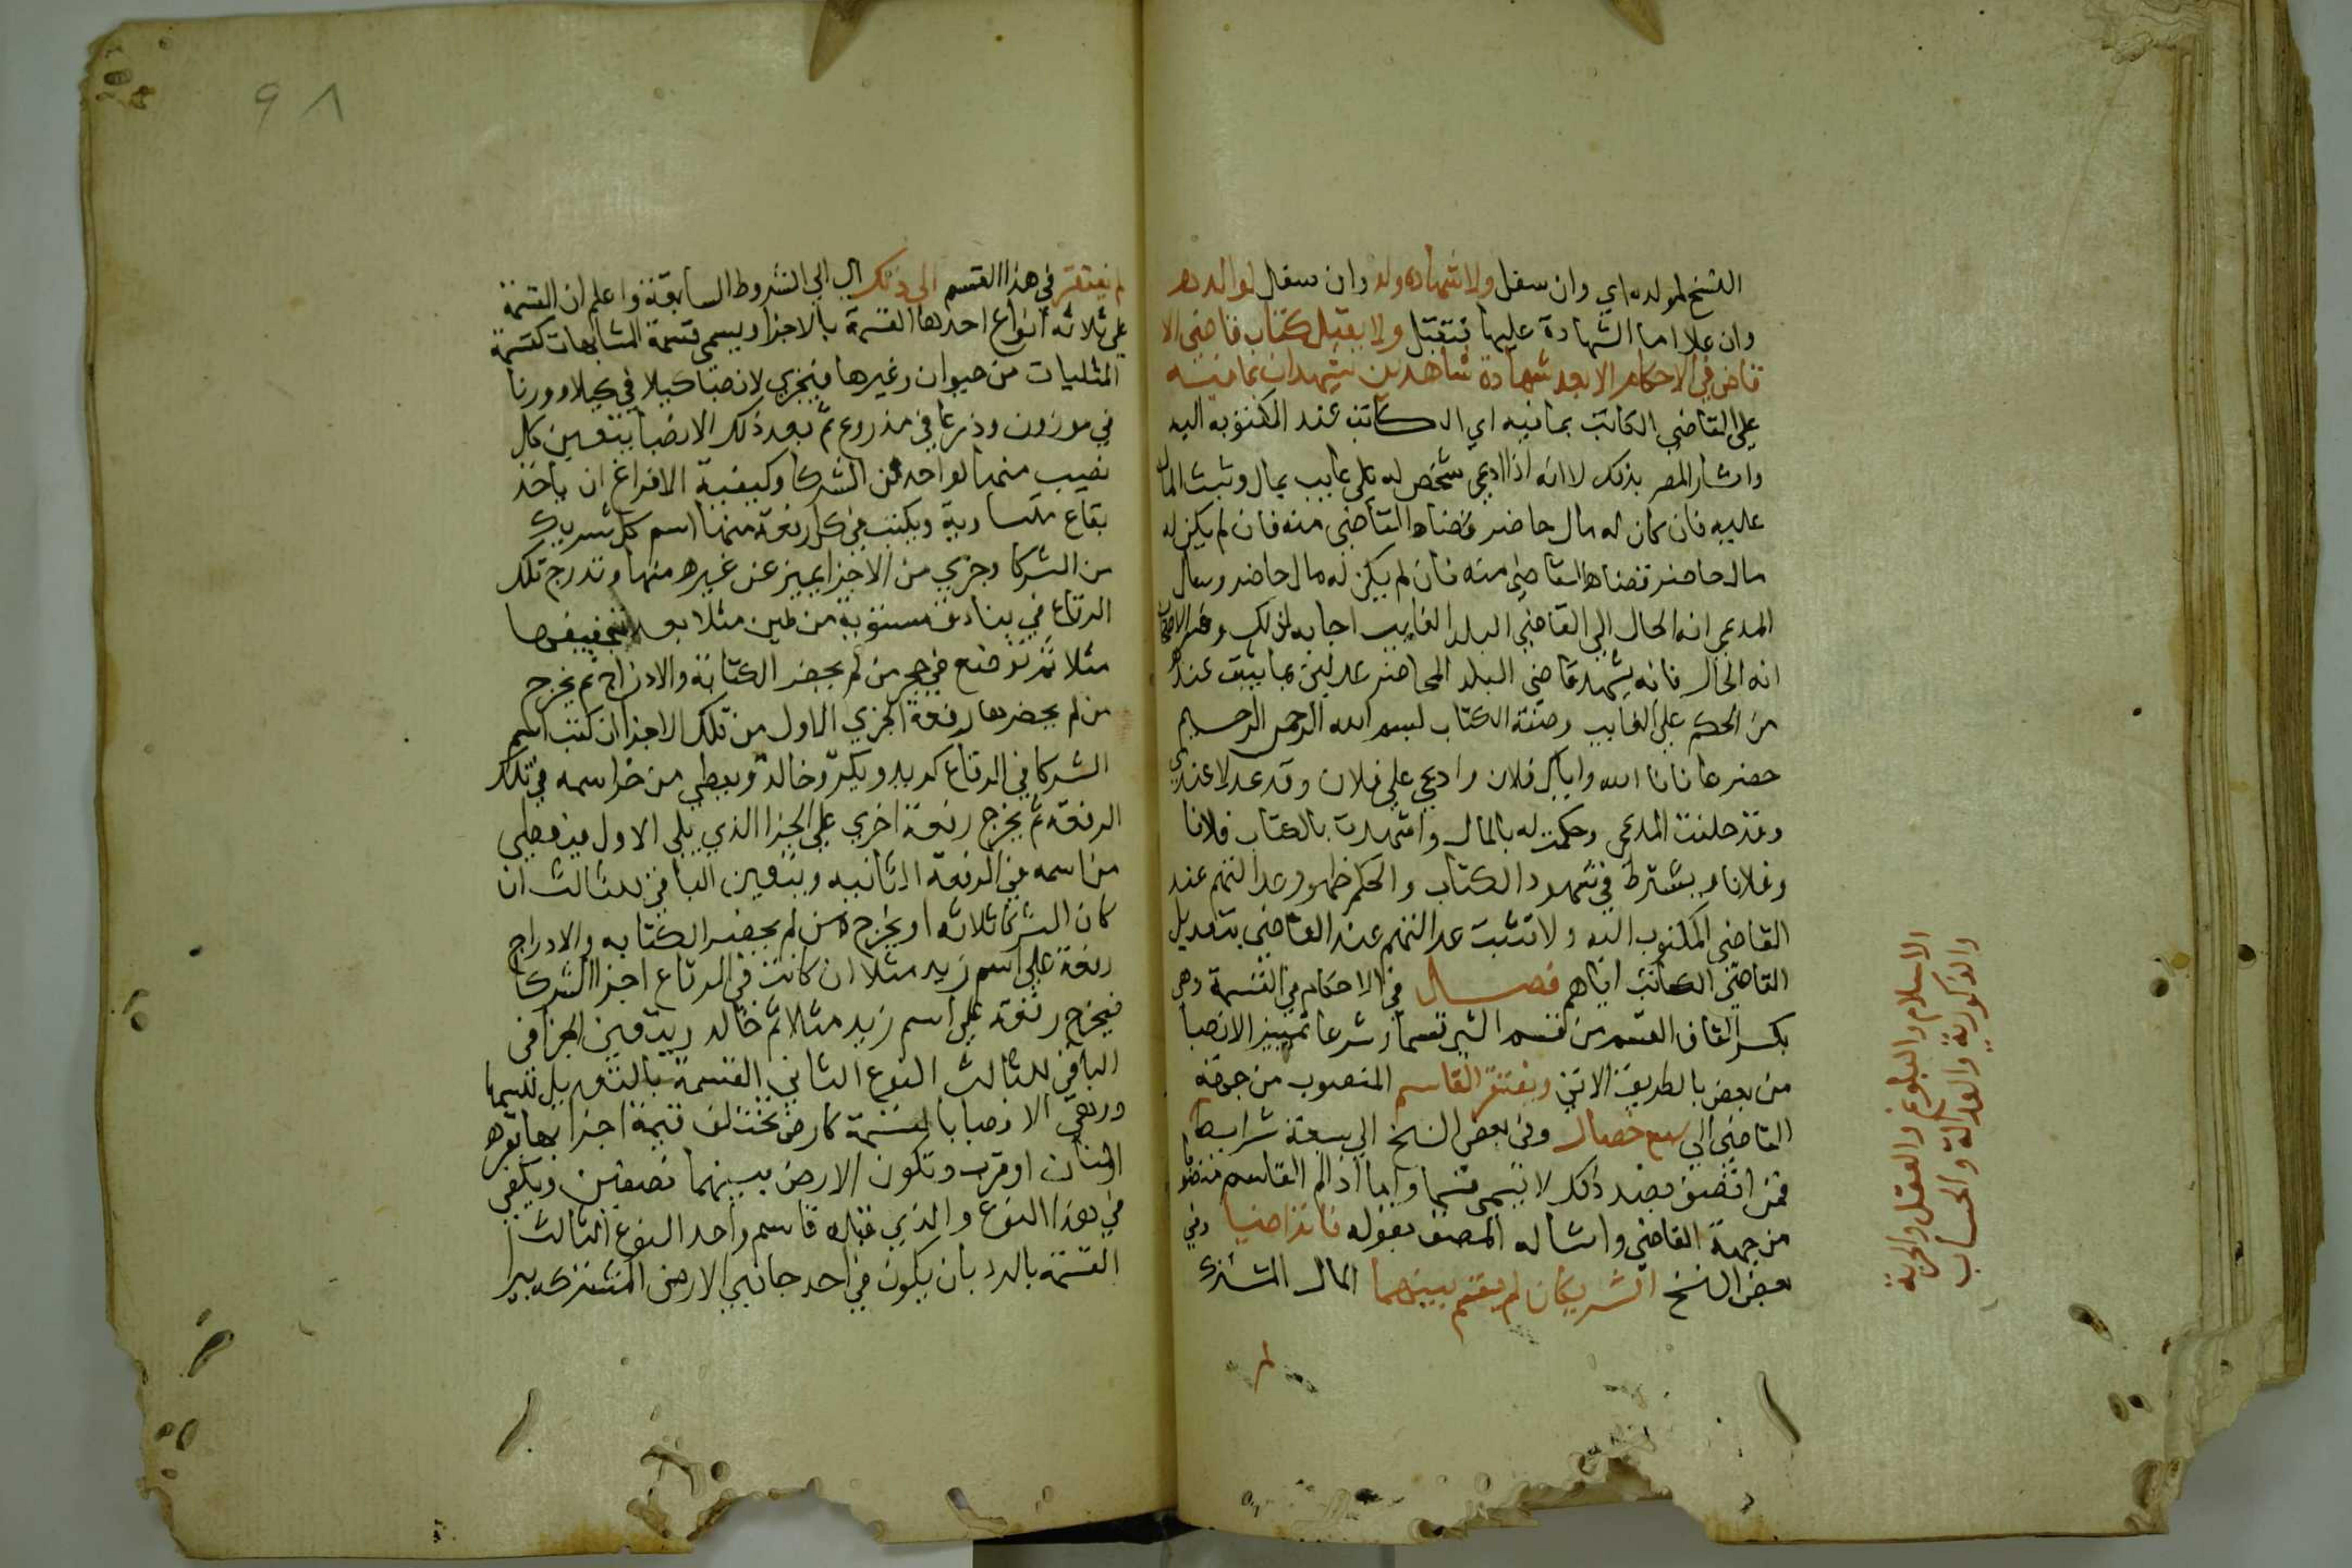 النسخ لمولده اي وان سفل ولا شهادة ولد وان سفل لوالده
وان علا اما الشهادة عليها فتقبل ولا يقبل كتاب قاضي الا
قاض في الاحكام الا بعد شهادة شاهدين يشهدان بما فيه
علي القاضي الكاتب بما فيه اي الكتاب عند المكتوب اليه
واشار المصر بذلك لا انه اذا ادعي شخص له علي غايب بمال وثبت المال
عليه فان كان له مال حاضر قضاه القاضي منه فان لم يكن له
مال حاضر قضاه القاضي منه فان لم يكن له مال حاضر وسال
المدعي انه الحال الي القاضي البلد الغايب اجابه لذلك وفسر الاصحاب
انه الحال فانه يشهد قاضي البلد الحاضر عدلين بما يثبت عنده
من الحكم علي الغايب وصفة الكتاب بسم الله الرحمن الرحيم
حضر عافانا الله واياك فلان وادعي علي فلان وقد عدلا عندي
وقد حلفت المدعي وحكمت له بالمال واشهدت بالكتاب فلانا
وفلانا ويشترط في شهود الكتاب والحكم ظهور عدالتهم عند
القاضي المكتوب اليه ولا تثبت عدالتهم عند القاضي بتعديل
القاضي الكاتب اياهم فصل في الاحكام في القسمة وهي
بكسر القاف القسم من قسم الشي قسما وشرعا تمييز الانصبا
من بعض بالطريق الاتي ويفتقر القاسم المنصوب من جهة
القاضي الي سبع خصال وفي بعض النسخ الي سبعة شرايط
فمن اتصف بضد ذلك لا يسمي قسما واما اذا لم القاسم منصوبا
من جهة القاضي واشار له المصنف بقوله فان تراضيا وفي
بعض النسخ الشريكان لم يقسم بينهما المال المشترك
لم
الاسلام والبلوغ والعقل والحرية
والذكورية والعدالة والحساب
٩٨
لم يفتقر في هذا القسم الي ذلك اي الي الشروط السابقة واعلم ان القسمة
علي ثلاثه انواع احدها القسمة بالاجزا ويسمي قسمة المتشابهات كقسمة
المثليات من حيوان وغيرها فيجزي الانصبا كيلا في كيلا ووزنا
في موزون وذرعا في مذروع ثم بعد ذلك الانصبا يتعين كل
نصيب منها لواحد من الشركا وكيفية الاقراع ان ياخذ
بقاع متساوية ويكتب في كل رقعة منها اسم كل شريك
من الشركا وجزي من الاجزا يميز عن غيره منها وتدرج تلك
الرقاع في بنادق مستوية من طين مثلا بعد تجفيفها
مثلا ثم توضع في حجر من لم يحضر الكتابة والادراج ثم يخرج
من لم يحضرها رقعة الجزي الاول من تلك الاجزا ان كتبت اسم
الشركا في الرقاع كزيد وبكر وخالد ويعطي من خرا سمه في تلك
الرقعة ثم يخرج رقعة اخري علي الجزا الذي يلي الاول فيعطي
من اسمه في الرقعة الثانيه ويتعين الباقي للثالث ان
كان الشركا ثلاثه او يخرج من لم يحضر الكتابه والادراج
رقعة علي اسم زيد مثلا ان كانت في الرقاع اجزا الشركا
فيخرج رقعة علي اسم زيد مثلا ثم خالد ويتعين الجزا في
الباقي للثالث النوع الثاني القسمة بالتعديل للسهام
وهي الانصبا بالقسمة كارض تختلف قيمة اجزايها بقوه
انبات او قرب وتكون الارض بينهما نصفين ويكفي
في هذا النوع والذي قبله قاسم واحد النوع الثالث
القسمة بالرد بان يكون في احد جانبي الارض المشتركه بير